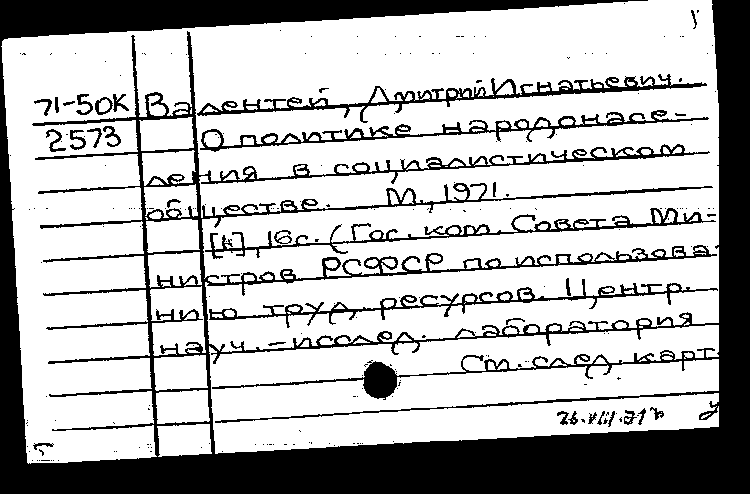 71-50К Валентей, Дмитрий Игнатьевич.
2573 О политике народонасе-
ления в социалистическом
обществе. М., 1971.
16с. (Гос. ком. Совета Ми-
нистров РСФСР по использова
нию труд. ресурсов. Центр.
науч.-исслед. лаборатория
См. след. карт.